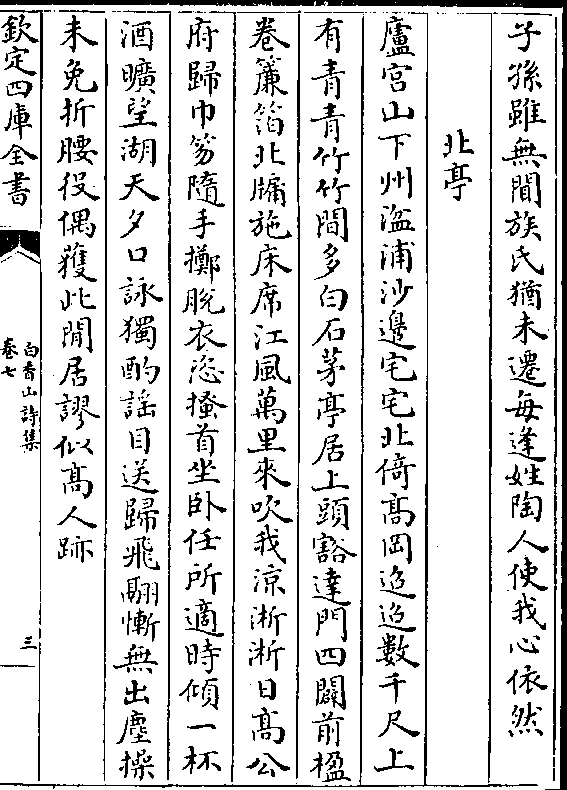 子孫雖無聞族氏猶未遷每逢姓陶人使我心依然
北亭
廬宮山下州湓浦沙邊宅宅北倚髙岡迢迢數千尺上
有青青竹竹間多白石茅亭居上頭豁達門四闢前楹
卷簾箔北牖施床席江風萬里來吹我涼淅淅日髙公
府歸巾笏隨手擲脫衣恣搔首坐卧任所適時傾一杯
酒曠望湖天夕口詠獨酌謠目送歸飛翮慚無出塵操
未免折腰役偶獲此閒居謬似髙人跡
欽定四庫全書
白香山詩集
卷七
三